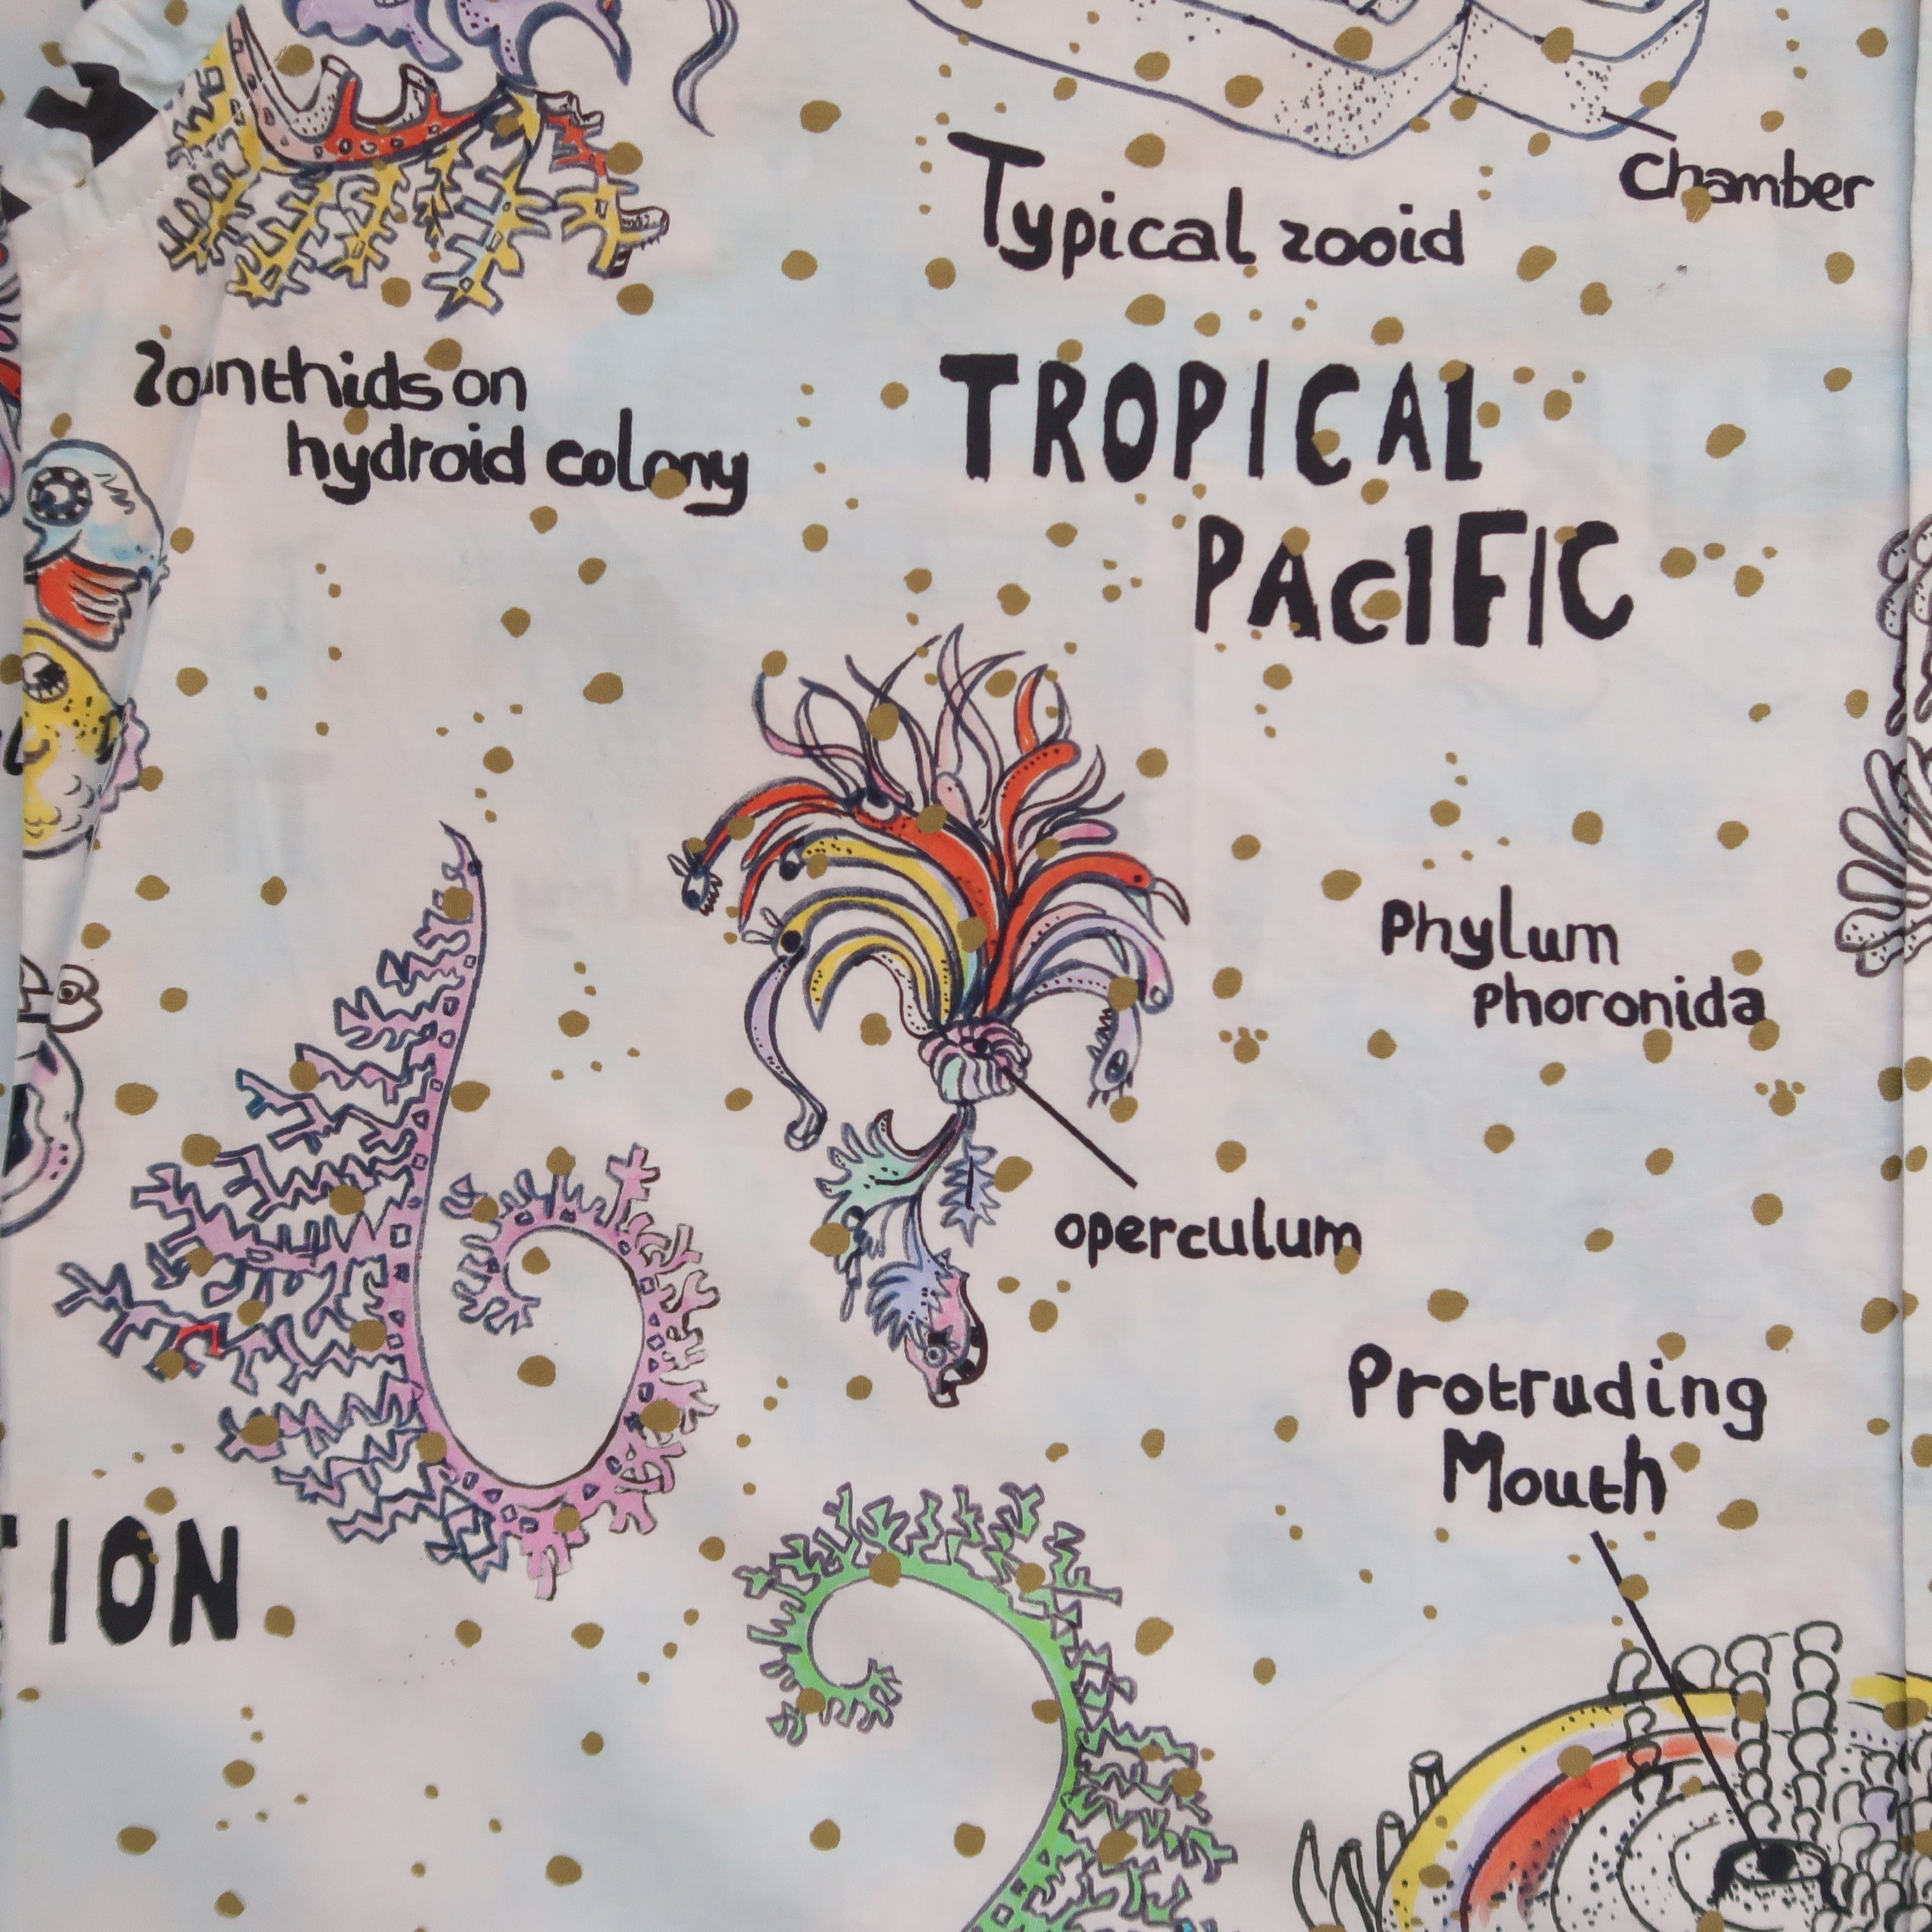 Chamber
Typical zooid
Zoanthids on
hydroid colony
TROPICAL
PACIFIC
Phylum
phoronida
operculum
Protruding
Mouth
TION